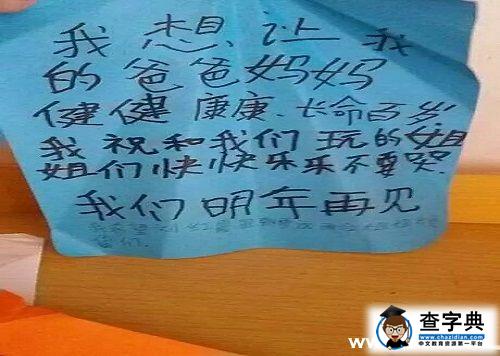 我想让我
的爸爸妈妈
健健康康.长命百岁
我祝和我们玩的姐
姐们快快乐乐不要哭.
我们明年再见
查字典
www.chazidian.com
中文教育资源第一平台